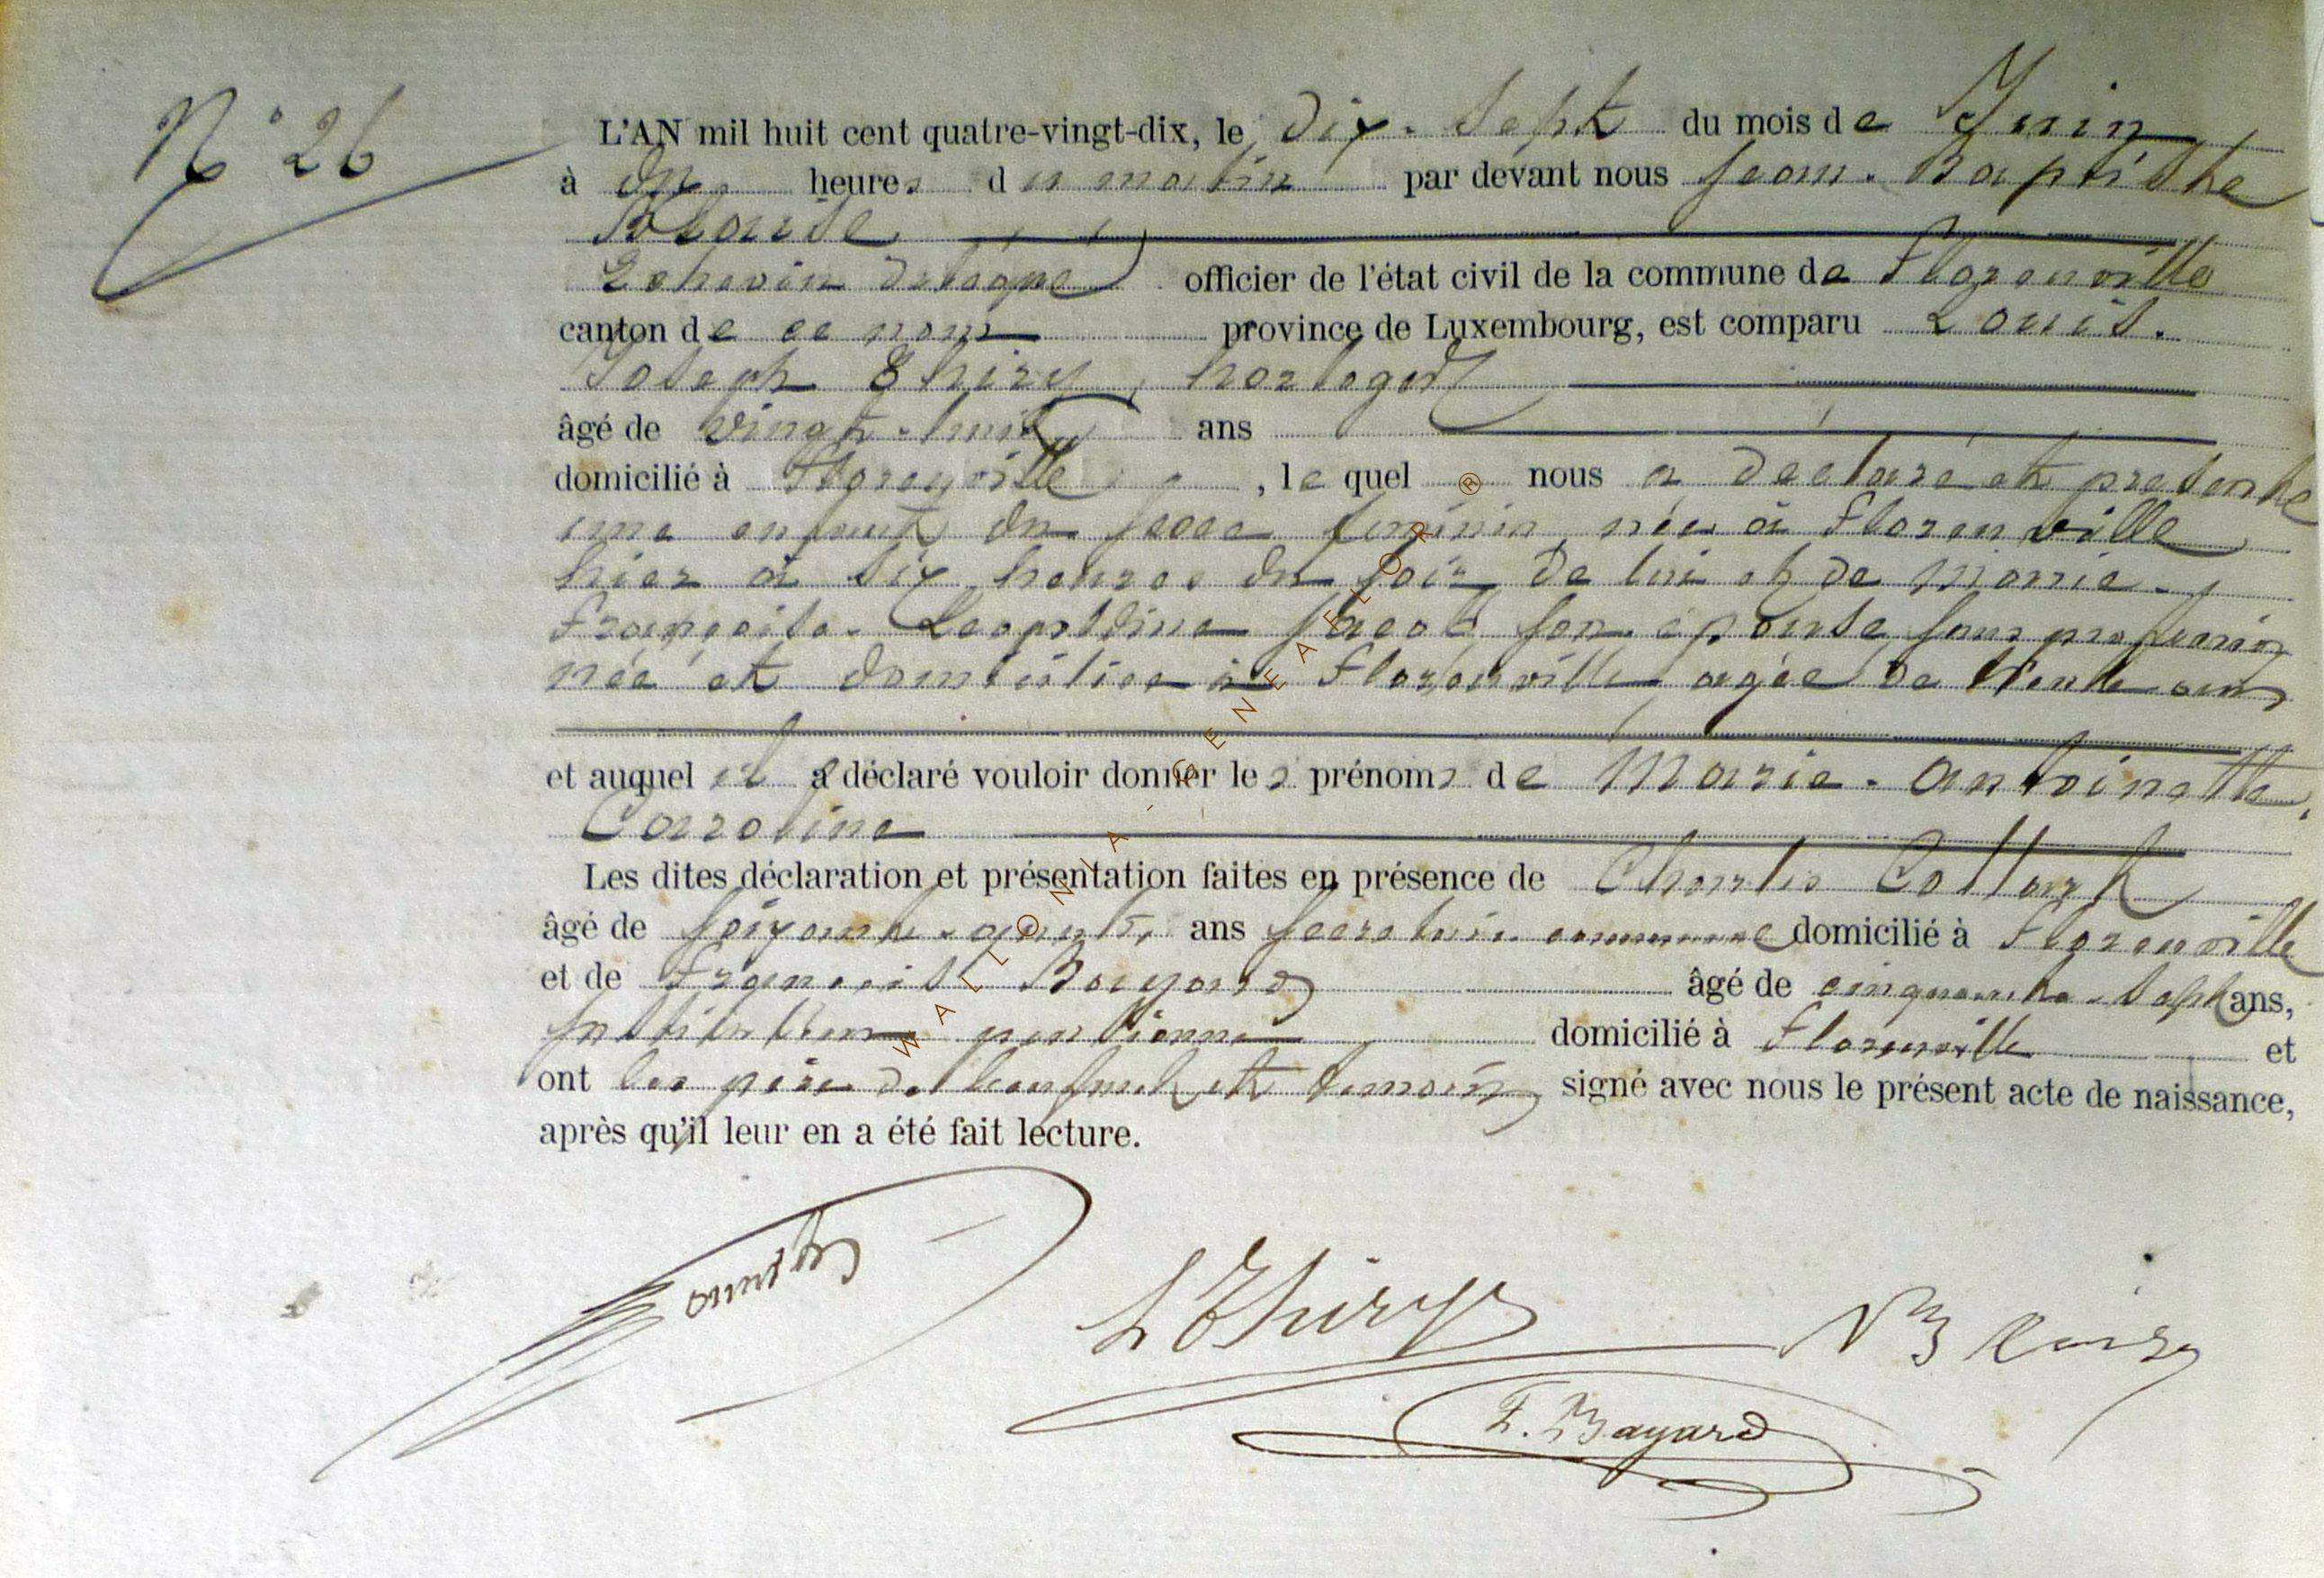 N° 26
L'AN mil huit cent quatre-vingt-dix, le dix-sept du mois de Juin
à heures du matin par devant nous Jean-Baptiste
Blaise
Echevin délégué officier de l'état civil de la commune de Florenville
canton de ce nom province de Luxembourg, est comparu Louis-
Joseph Thiry, horloger
âgé de vingt-huit ans
domicilié à Florenville, lequel nous a déclaré et présenté
une enfant du sexe féminin née à Florenville
hier à six heures du soir de lui et de Marie-
Françoise-Léopoldine son épouse sans profession
née et domiciliée à Florenville agée de trente ans
et auquel il a déclaré vouloir donner les prénoms de Marie-Antoinette,
Caroline
Les dites déclaration et présentation faites en présence de Charles Collart
âgé de soixante- ans secrétaire communal domicilié à Florenville
et de François Bayard âgé de cinquante-sept ans,
Instituteur pensionné domicilié à Florenville et
ont les père de l'enfant et témoins signé avec nous le présent acte de naissance,
après qu'il leur en a été fait lecture.
L Thiry
F. Bayard
WALLONIA - GENEAFLOR ®